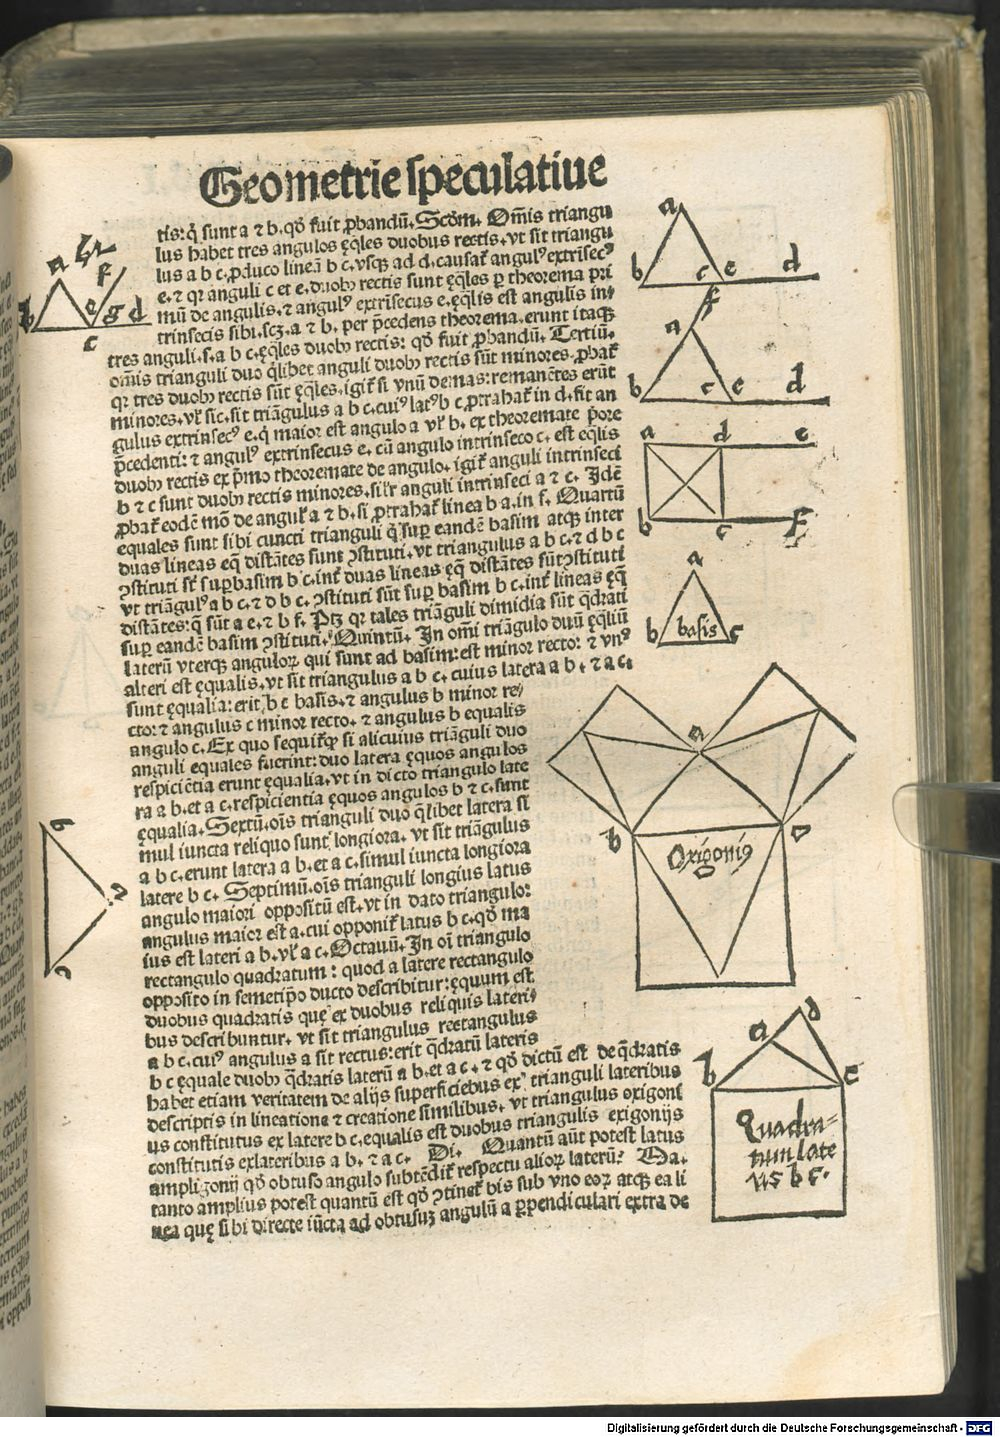 Geometrie speculatiue
tis: q̄ sunt a ⁊ b, qd̄ fuit ꝓbandū. Scdm̄. Om̄is triangu
lus habet tres angulos ęq̄les duobus rectis, vt sit triangu
lus a b c, ꝓduco lineā b c, vsq̨ ad d, causat̄ angulꝰ extrīsecꝰ
e, ⁊ qꝛ anguli c et e, duobꝫ rectis sunt ęq̄les ꝑ theorema pri
mū de angulis, ⁊ angulꝰ extrīsecus e, ęq̄lis est angulis in/
trinsecis sibi, scꝫ, a ⁊ b, per p̄cedens theorema, erunt itaqꝫ
tres anguli, s, a b c, ęq̄les duobꝫ rectis: qd̄ fuit ꝓbandū. Tertiū.
om̄is trianguli duo q̄libet anguli duobꝫ rectis sūt minores. ꝓbat̄
qꝛ tres duobꝫ rectis sūt ęq̄les, igit̄ si vnū demas: remanētes erūt
minores, vl̄ sic, sit triāgulus a b c, cuiꝰ latꝰ b c, ꝓtrahat̄ in d, fit an
gulus extrinsecꝰ e, q̄ maior est angulo a vl̄ b, ex theoremate p̄ore
p̄cedenti: ⁊ angulꝰ extrinsecus e, cū angulo intrinseco c, est ęq̄lis
duobꝫ rectis ex p̄mo theoremate de angulo, igit̄ anguli intrinseci
b ⁊ c sunt duobꝫ rectis minores, sil̄r anguli intrinseci a ⁊ c. Idē
ꝓbat̄ eodē mō de angul̄ a ⁊ b, si ꝓtrahat̄ linea b a, in f. Quartū
equales sunt sibi cuncti trianguli q̄ suꝑ eandē basim atqꝫ inter
duas lineas eq̄ distātes sunt ꝯstituti, vt triangulus a b c, ⁊ d b c
ꝯstituti st̄ suꝑ basim b c, int̄ duas lineas ęq̄ distātes sūt ꝯstituti
vt triāgulꝰ a b c, ⁊ d b c, ꝯstituti sūt suꝑ basim b c, int̄ lineas ęq̄
distātes: q̄ sūt a e, ⁊ b f. Ptꝫ qꝛ tales triāguli dimidia sūt q̄drati
suꝑ eandē basim ꝯstituti. Quintū. In om̄i triāgulo duū ęq̄liū
laterū vterqꝫ anguloꝝ qui sunt ad basim: est minor recto: ⁊ vnꝰ
alteri est ęqualis, vt sit triangulus a b c, cuius latera a b, ⁊ a c,
sunt ęqualia: erit b c basis, ⁊ angulus b minor re/
cto: ⁊ angulus c minor recto, ⁊ angulus b equalis
angulo c. Ex quo sequit̄qꝫ si alicuius triāguli duo
anguli equales fuerint: duo latera ęquos angulos
respiciētia erunt ęqualia, vt in dicto triangulo late
ra a b, et a c, respicientia ęquos angulos b ⁊ c, sunt
ęqualia. Sextū, oīs trianguli duo q̄libet latera si
mul iuncta reliquo sunt longiora, vt sit triāgulus
a b c, erunt latera a b, et a c, simul iuncta longiora
latere b c. Septimū, oīs trianguli longius latus
angulo maiori oppositū est, vt in dato triangulo:
angulus maior est a, cui opponit̄ latus b c, qd̄ ma
ius est lateri a b, vl̄ a c. Octauū. In oī triangulo
rectangulo quadratum: quod a latere rectangulo
opposito in semetip̄o ducto describitur: ęquum est
duobus quadratis quę ex duobus reliquis lateri/
bus describuntur, vt sit triangulus rectangulus
a b c, cuiꝰ angulus a sit rectus: erit q̄dratū lateris
b c ęquale duobꝫ q̄dratis laterū a b, et a c, ⁊ qd̄ dictū est de q̄dratis
habet etiam veritatem de alijs superficiebus exꝰ trianguli lateribus
descriptis in lineatione ⁊ creatione similibus, vt triangulus oxigoni
us constitutus ex latere b c, equalis est duobus triangulis exigonijs
constitutis exlateribus a b, ⁊ a c. Di. Quantū aūt potest latus
ampligonij qd̄ obtuso angulo subtēdit̄ respectu alioꝝ laterū? Ma.
tanto amplius potest quantū est qd̄ ꝯtinet̄ bis sub vno eoꝝ atqꝫ ea li
nea quę sibi directe iūcta ad obtusuꝫ angulū a ꝑpendiculari extra de
a
b c e d
f
a
b c e d
a d e
b c f
a
b basis c
a
b
Oxigoniꝰ
d
a
b c
Quadra=
tum late
ris b c.
a
f
b e g d
c
b
a
c
Digitalisierung gefördert durch die Deutsche Forschungsgemeinschaft - DFG